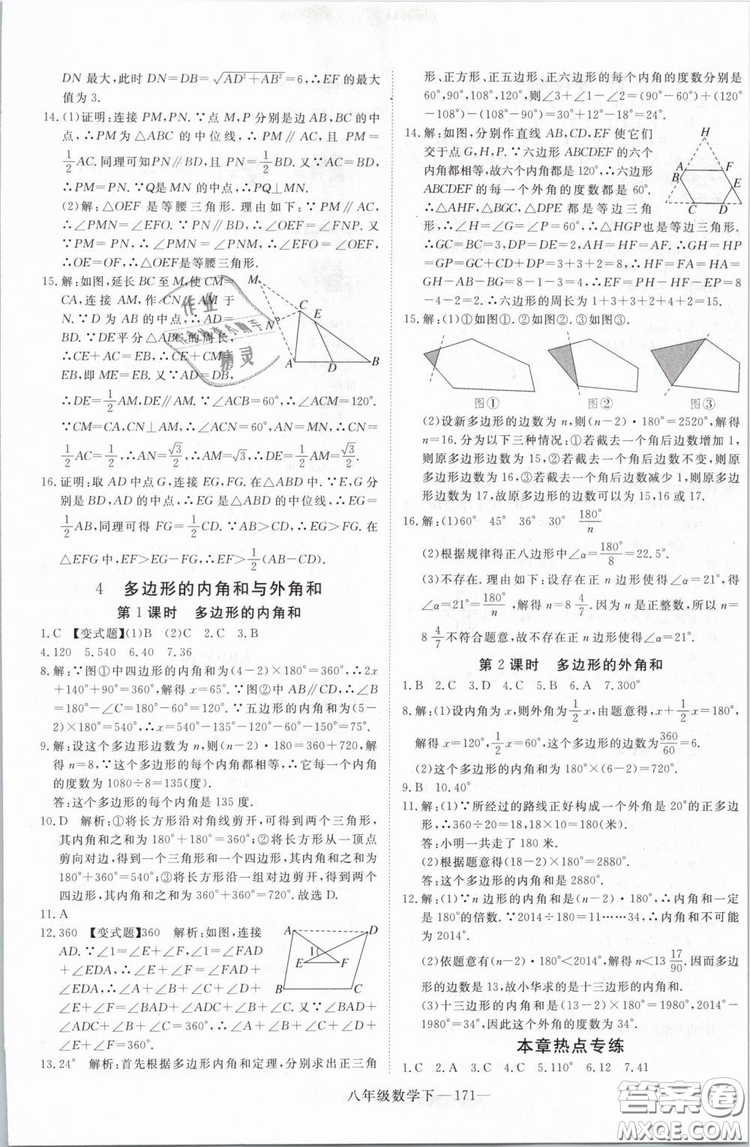 DN 最大，此时 DN=DB=√(AD²+AB²)=6，∴EF 的最大
值为 3.
14.(1)证明：连接 PM，PN. ∵点 M，P 分别是边 AB，BC 的中
点，∴PM 为 △ABC 的中位线，∴PM∥AC，且 PM=
1/2 AC. 同理可知 PN∥BD，且 PN=1/2 BD. ∵AC=BD，
∴PM=PN. ∵Q是 MN 的中点，∴PQ⊥MN.
(2)解：△OEF 是等腰三角形. 理由如下：∵PM∥AC，
∴∠PMN=∠EFO. ∵PN∥BD，∴∠PNM=∠OEF. 又
∵PM=PN，∴∠PMN=∠PNM，∴∠EFO=∠OEF，
∴OE=OF，∴△OEF 是等腰三角形.
15.解：如图，延长 BC 至 M，使 CM=
CA，连接 AM，作 CN⊥AM 于
N. ∵D 为 AB 的中点，∴AD=
DB. ∵DE平分△ABC 的周长，
∴CE+AC=EB，∴CE+CM=
EB，即 ME=EB. 又∵AD=DB，
∴DE=1/2 AM，DE∥AM. ∵∠ACB=60°，∴∠ACM=120°.
∵CM=CA，CN⊥AM，∴∠ACN=60°，AN=MN，∴CN=
1/2 AC=1/2，∴AN=√3/2，∴AM=√3，∴DE=1/2 AM=√3/2.
16.证明：取 AD 中点 G，连接 EG，FG. 在△ABD 中，∵E，G 分
别是 AD，BD 的中点，∴EG 是 △ABD 的中位线，∴EG=
1/2 AB，同理可得 FG=1/2 CD. ∵AB>CD，∴EG>FG. 在
△EFG 中，EF>EG−FG，∴EF>1/2(AB−CD).
4 多边形的内角和与外角和
第 1 课时 多边形的内角和
1.C 【变式题】(1)B (2)C 2.C 3.B
4.120 5.540 6.40 7.36
8.解：∵图①中四边形的内角和为(4−2)×180°=360°，∴2x
+140°+90°=360°，解得 x=65°. ∵图②中 AB∥CD，∴∠B
=180°−∠C=180°−60°=120°. ∵五边形的内角和为(5−
2)×180°=540°，∴x=540°−135°−120°−60°−150°=75°.
9.解：设这个多边形边数为 n，则(n−2)·180=360+720，解
得 n=8，∵这个多边形的每个内角都相等，∴它每一个内角
的度数为 1080÷8=135(度).
答：这个多边形的每个内角是 135 度.
10.D 解析：①将长方形沿对角线剪开，可得到两个三角形，
其内角和之和为 180°+180°=360°；②将长方形从一顶点
剪向对边，得到一个三角形和一个四边形，其内角和之和为
180°+360°=540°；③将长方形沿一组对边剪开，得到两个
四边形，其内角和之和为 360°+360°=720°. 故选 D.
11.A
12.360 【变式题】360 解析：如图，连接
AD. ∵∠1=∠E+∠F，∠1=∠FAD
+∠EDA，∴∠E+∠F=∠FAD+
∠EDA，∴∠A+∠B+∠C+∠D+
∠E+∠F=∠BAD+∠ADC+∠B+∠C. 又∵∠BAD+
∠ADC+∠B+∠C=360°，∴∠A+∠B+∠C+∠D+
∠E+∠F=360°.
13.24° 解析：首先根据多边形内角和定理，分别求出正三角
形、正方形、正五边形、正六边形的每个内角的度数分别是
60°，90°，108°，120°，则∠3+∠1−∠2=(90°−60°)+(120°
−108°)−(108°−90°)=30°+12°−18°=24°.
14.解：如图，分别作直线 AB，CD，EF 使它们
交于点 G，H，P. ∵六边形 ABCDEF 的六个
内角都相等，故六个内角都是 120°，∴六边形
ABCDEF 的每一个外角的度数都是 60°.
∴△AHF，△BGC，△DPE 都是等边三角
形，∴∠H=∠G=∠P=60°，∴△HGP也是等边三角形.
∴GC=BC=3，DP=DE=2，AF=HF=HA，HP=HG=
GP=GC+CD+DP=3+3+2=8，∴HF=FA=HP−
EF−EP=8−4−2=2，AB=HG−HA−BG=8−2−3=
3，∴六边形的周长为 1+3+3+2+4+2=15.
15.解：(1)①如图①. ②如图②. ③如图③.
图① 图② 图③
(2)设新多边形的边数为 n，则(n−2)·180°=2520°，解得
n=16. 分为以下三种情况：①若截去一个角后边数增加 1，
则原多边形边数为 15，②若截去一个角后边数不变，则原多
边形边数为 16，③若截去一个角后边数减少 1，则原多边形
边数为 17，故原多边形的边数可以为 15，16 或 17.
16.解：(1)60° 45° 36° 30° 180°/n
(2)根据规律得正八边形中∠α=180°/8=22.5°.
(3)不存在. 理由如下：设存在正 n 边形使得∠α=21°，
∴∠α=21°=180°/n，解得 n=8 4/7. 又∵n 是正整数，所以 n=
8 4/7不符合题意，故不存在正 n 边形使得∠α=21°.
第 2 课时 多边形的外角和
1.B 2.C 3.D 4.C 5.B 6.A 7.300°
8.解：(1)设内角为 x，则外角为1/2 x，由题意得，x+1/2 x=180°，
解得 x=120°，1/2 x=60°，这个多边形的边数为360/60=6.
(2)这个多边形的内角和为(6−2)×180°=720°.
9.B 10.40°
11.解：(1)∵所经过的路线正好构成一个外角是 20°的正多边
形，∴360÷20=18，18×10=180(米).
答：小明一共走了 180 米.
(2)根据题意得(18−2)×180°=2880°.
答：这个多边形的内角和是 2880°.
12.解：(1)∵n 边形的内角和是(n−2)·180°，∴内角和一定
是 180°的倍数. ∵2014÷180=11……34，∴内角和不可能
为 2014°.
(2)依题意有(n−2)·180°<2014°，解得 n<13 17/90. 因而多边
形的边数是 13，故小华求的是十三边形的内角和.
(3)十三边形的内角和是(13−2)×180°=1980°，2014°−
1980°=34°，因此这个外角的度数为 34°.
本章热点专练
1.C 2.A 3.C 4.C 5.110° 6.12 7.41
八年级数学下—171—
作业
精灵
答案圈
MXQE.COM